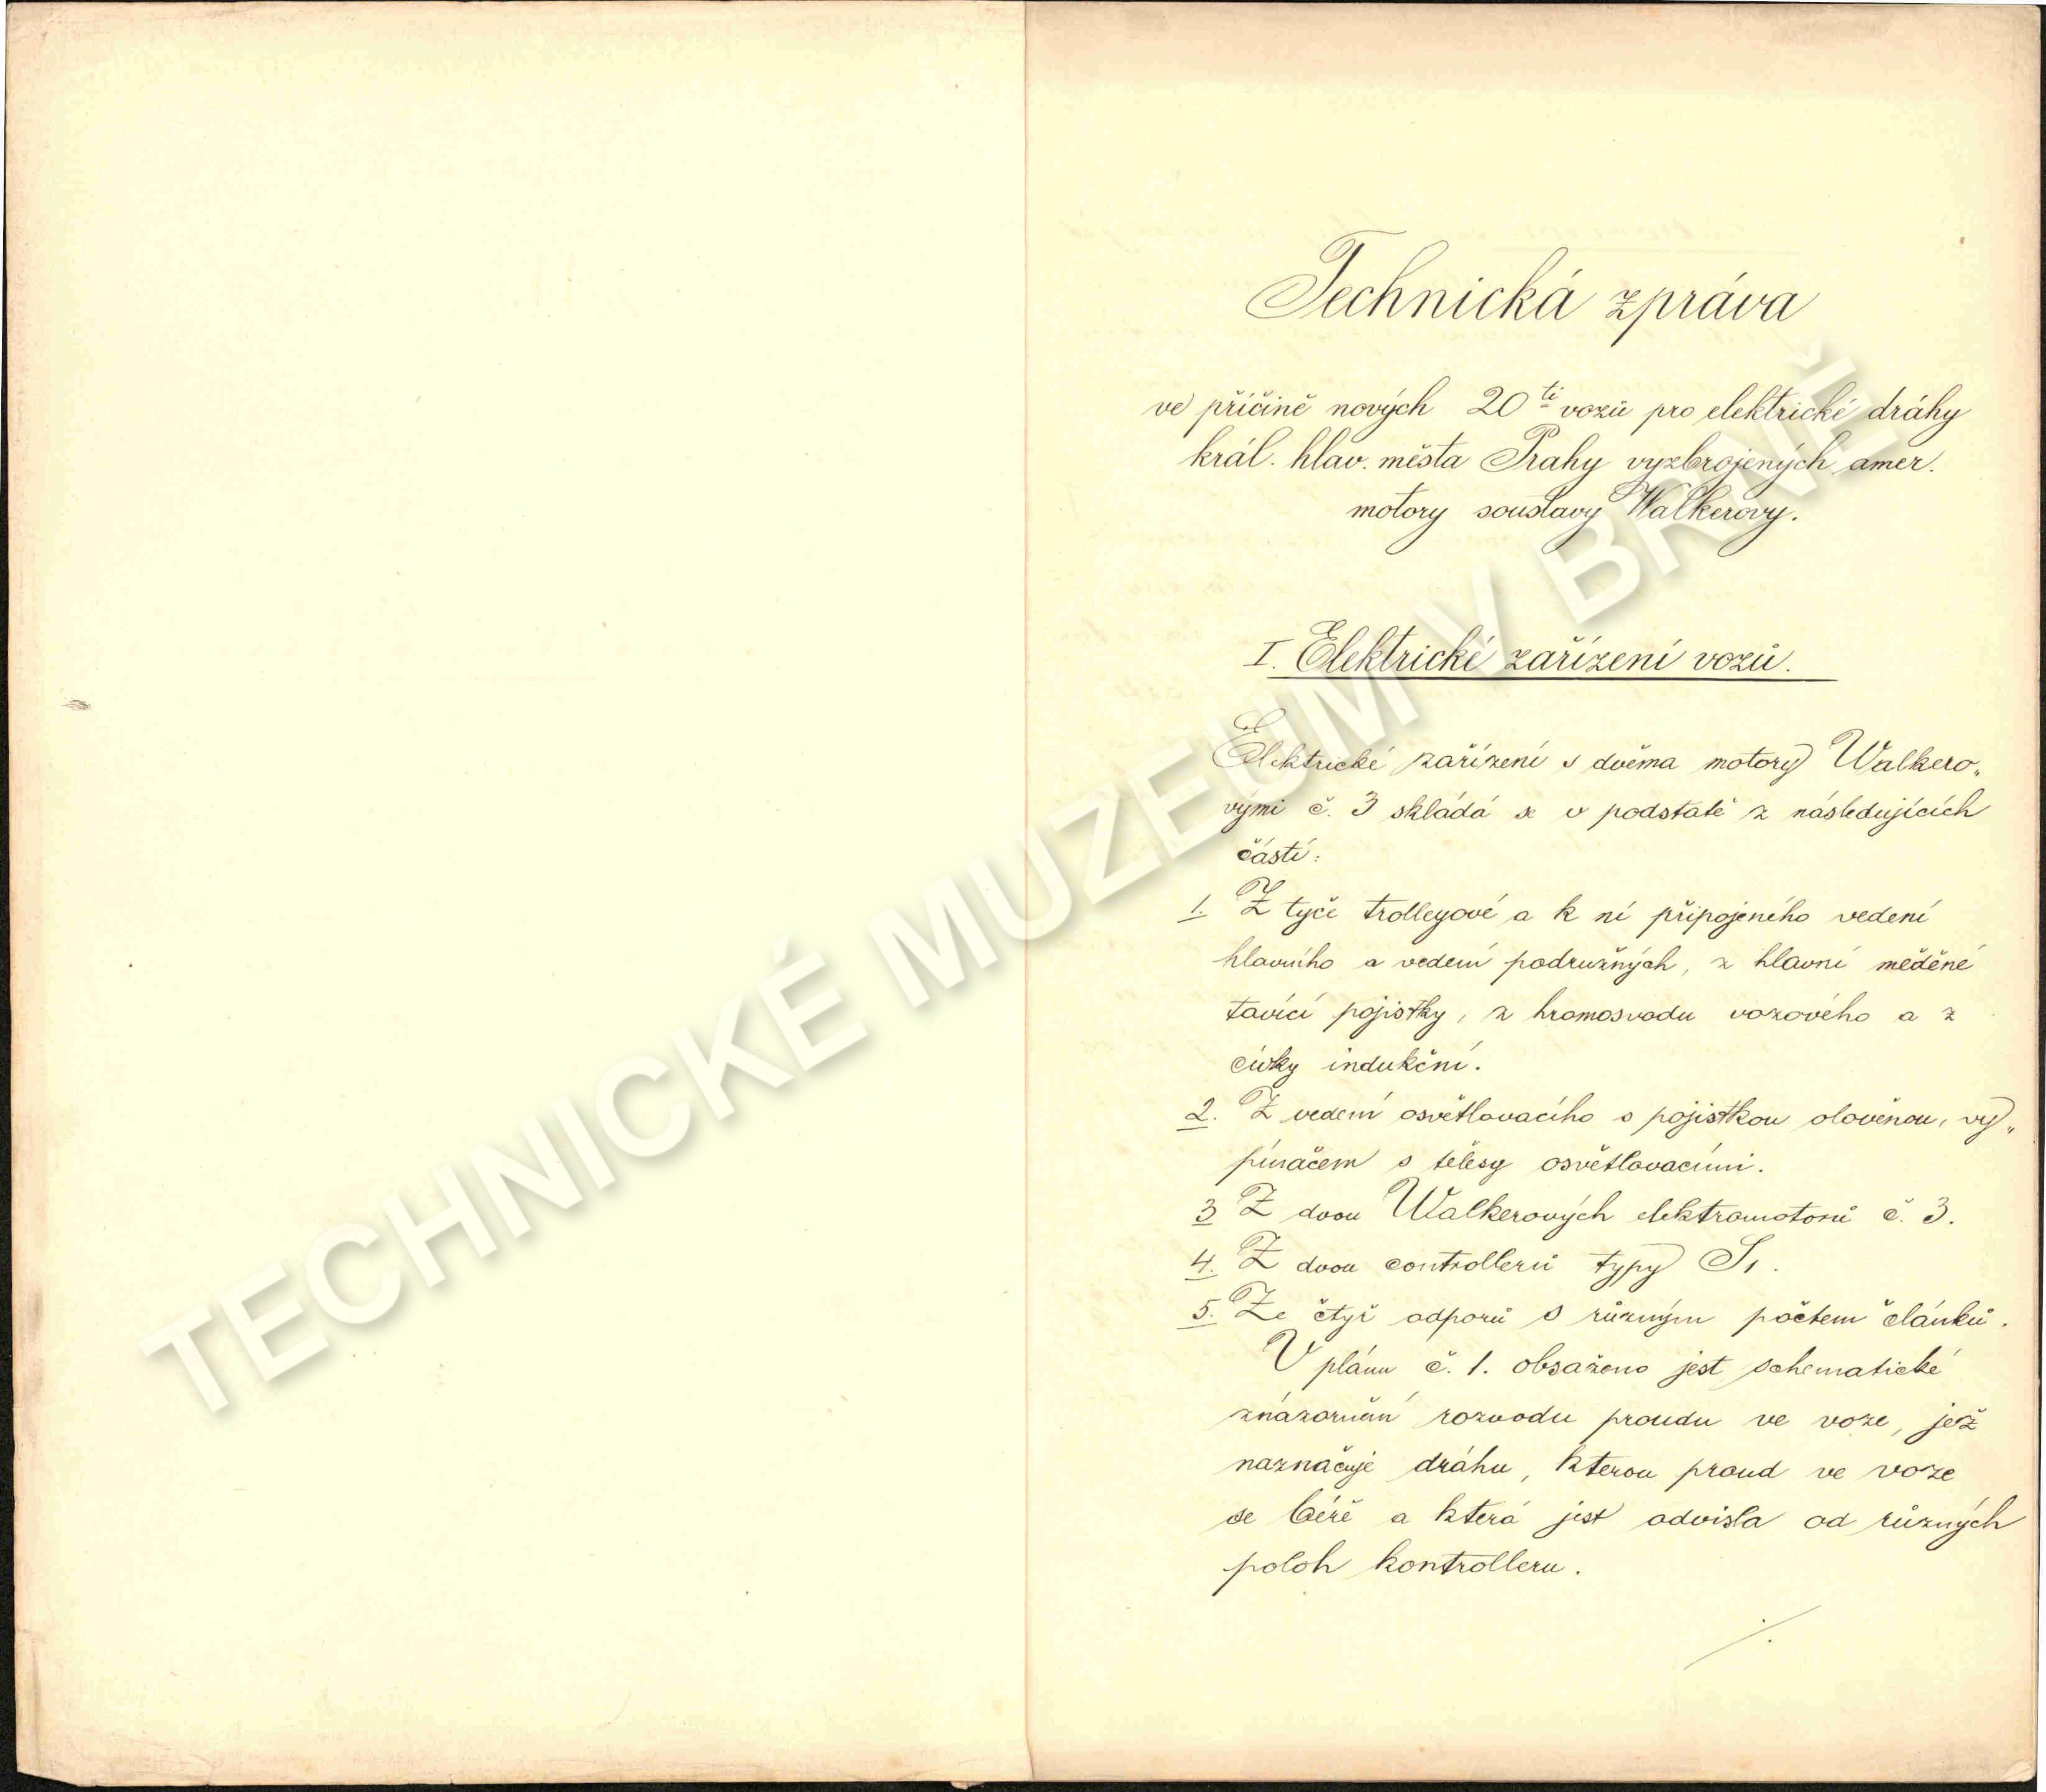 Technická zpráva
ve příčině nových 20ti vozů pro elektrické dráhy
král. hlav. města Prahy vyzbrojených amer.
motory soustavy Walkerovy.
I. Elektrické zařízení vozů.
Elektrické zařízení s dvěma motory Walkero„
vými č. 3 skládá se v podstatě z následujících
částí:
1. Z tyče trolleyové a k ní připojeného vedení
hlavního a vedení podružných, z hlavní měděné
tavící pojistky, z hromosvodu vozového a z
cívky indukční.
2. Z vedení osvětlovacího s pojistkou olověnou, vy„
pínačem s tělesy osvětlovacími.
3 Z dvou Walkerových elektromotorů č. 3.
4. Z dvou controllerů typy S1.
5. Ze čtyř odporů s různým počtem článků.
V plánu č. 1. obsaženo jest schematické
znázornění rozvodu proudu ve voze, jež
naznačuje dráhu, kterou proud ve voze
se béře a která jest odvislá od různých
poloh kontrolleru.
./.
TECHNICKÉ MUZEUM V BRNĚ